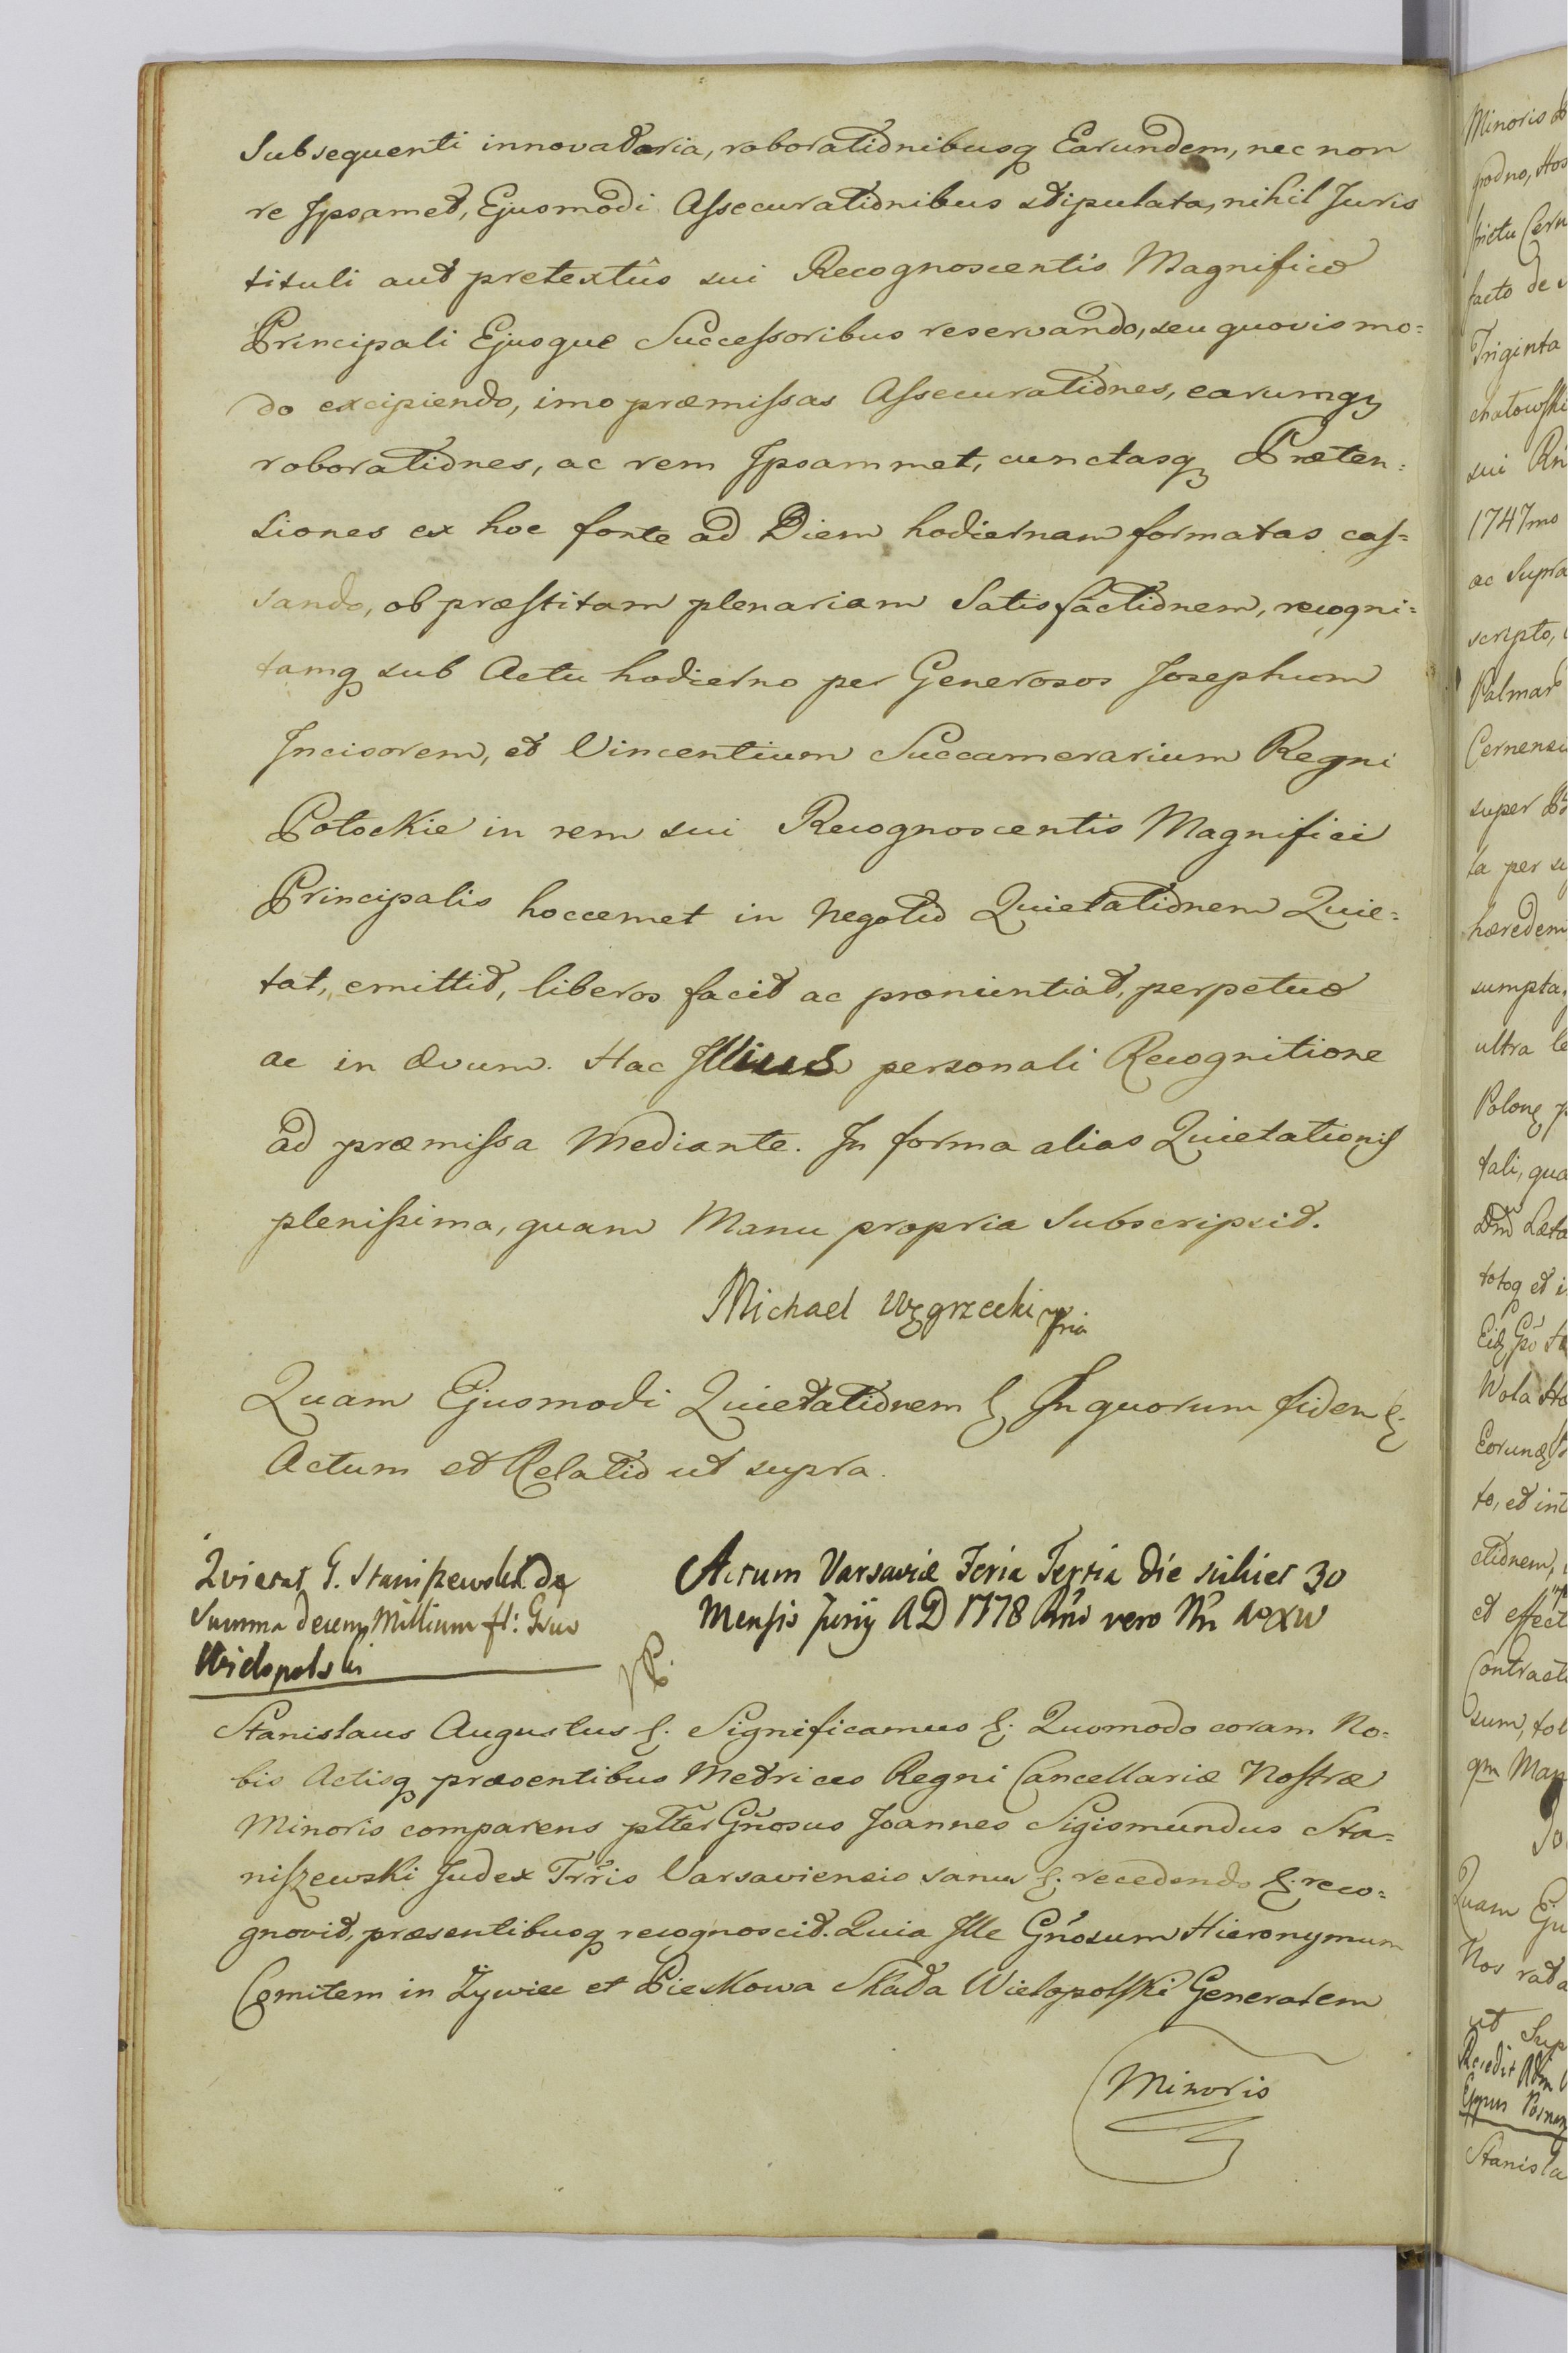 Subsequenti innovatoria, roborationibusq Earundem, nec non
re Ipsamet, Ejusmodi Assecurationibus stipulata, nihil Juris
tituli aut pretextûs sui Recognoscentis Magnifico
Principali Ejusque Successoribus reservando, seu quovis mo=
do excipiendo, imo præmissas Assecurationes, earumq
roborationes, ac rem Ipsammet, cunctasq Præten=
siones ex hoc fonte ad Diem hodiernam formatas cas=
sando, ob præstitam plenariam Satisfactionem, recogni=
tamq sub Actu hodierno per Generosos Josephum
Incisorem, et Vincentium Succamerarium Regni
Potockie in rem sui Recognoscentis Magnifici
Principalis hoccemet in Negotio Quietationem Quie=
tat, emittit, liberos facit ac pronuntiat, perpetuo
ac in ævum. Hac Illius personali Recognitione
ad præmissa Mediante. In forma alias Quietationis
plenissima, quam Manu propria Subscripsit.
Michael Węgrzecki mpria
Quam Ejusmodi Quietationem &. In quorum fidem &.
Actum et Relatio ut supra.
Quietat G. Staniszewski de
Summa decem Millium fl: Gsus
Wielopolski
Actum Varsaviæ Feria Tertia die scilicet 30
Mensis Junij AD 1778 Rñi vero Nri
Stanislaus Augustus &. Significamus &. Quomodo coram No=
bis Actisq præsentibus Metrices Regni Cancellariæ Nostræ
Minoris comparens pltter Gñosus Joannes Sigismundus Sta=
niszewski Judex Trris Varsaviensis sanus &. recedendo &. reco=
gnovit, præsentibusq recognoscit. Quia Ille Gñosum Hieronymum
Comitem in Żywiec et Pieskowa Skała Wielopolski Generalem
Minoris
Minoris
facto de
Triginta
sui
1747mo
ac Supra
scripto,
super
ta per
hæredem
sumpta,
ultra
tali,
Wola
to, et
et
Contract
sum,
Quam Eju
Nos rata
ut Sup
Stanisla